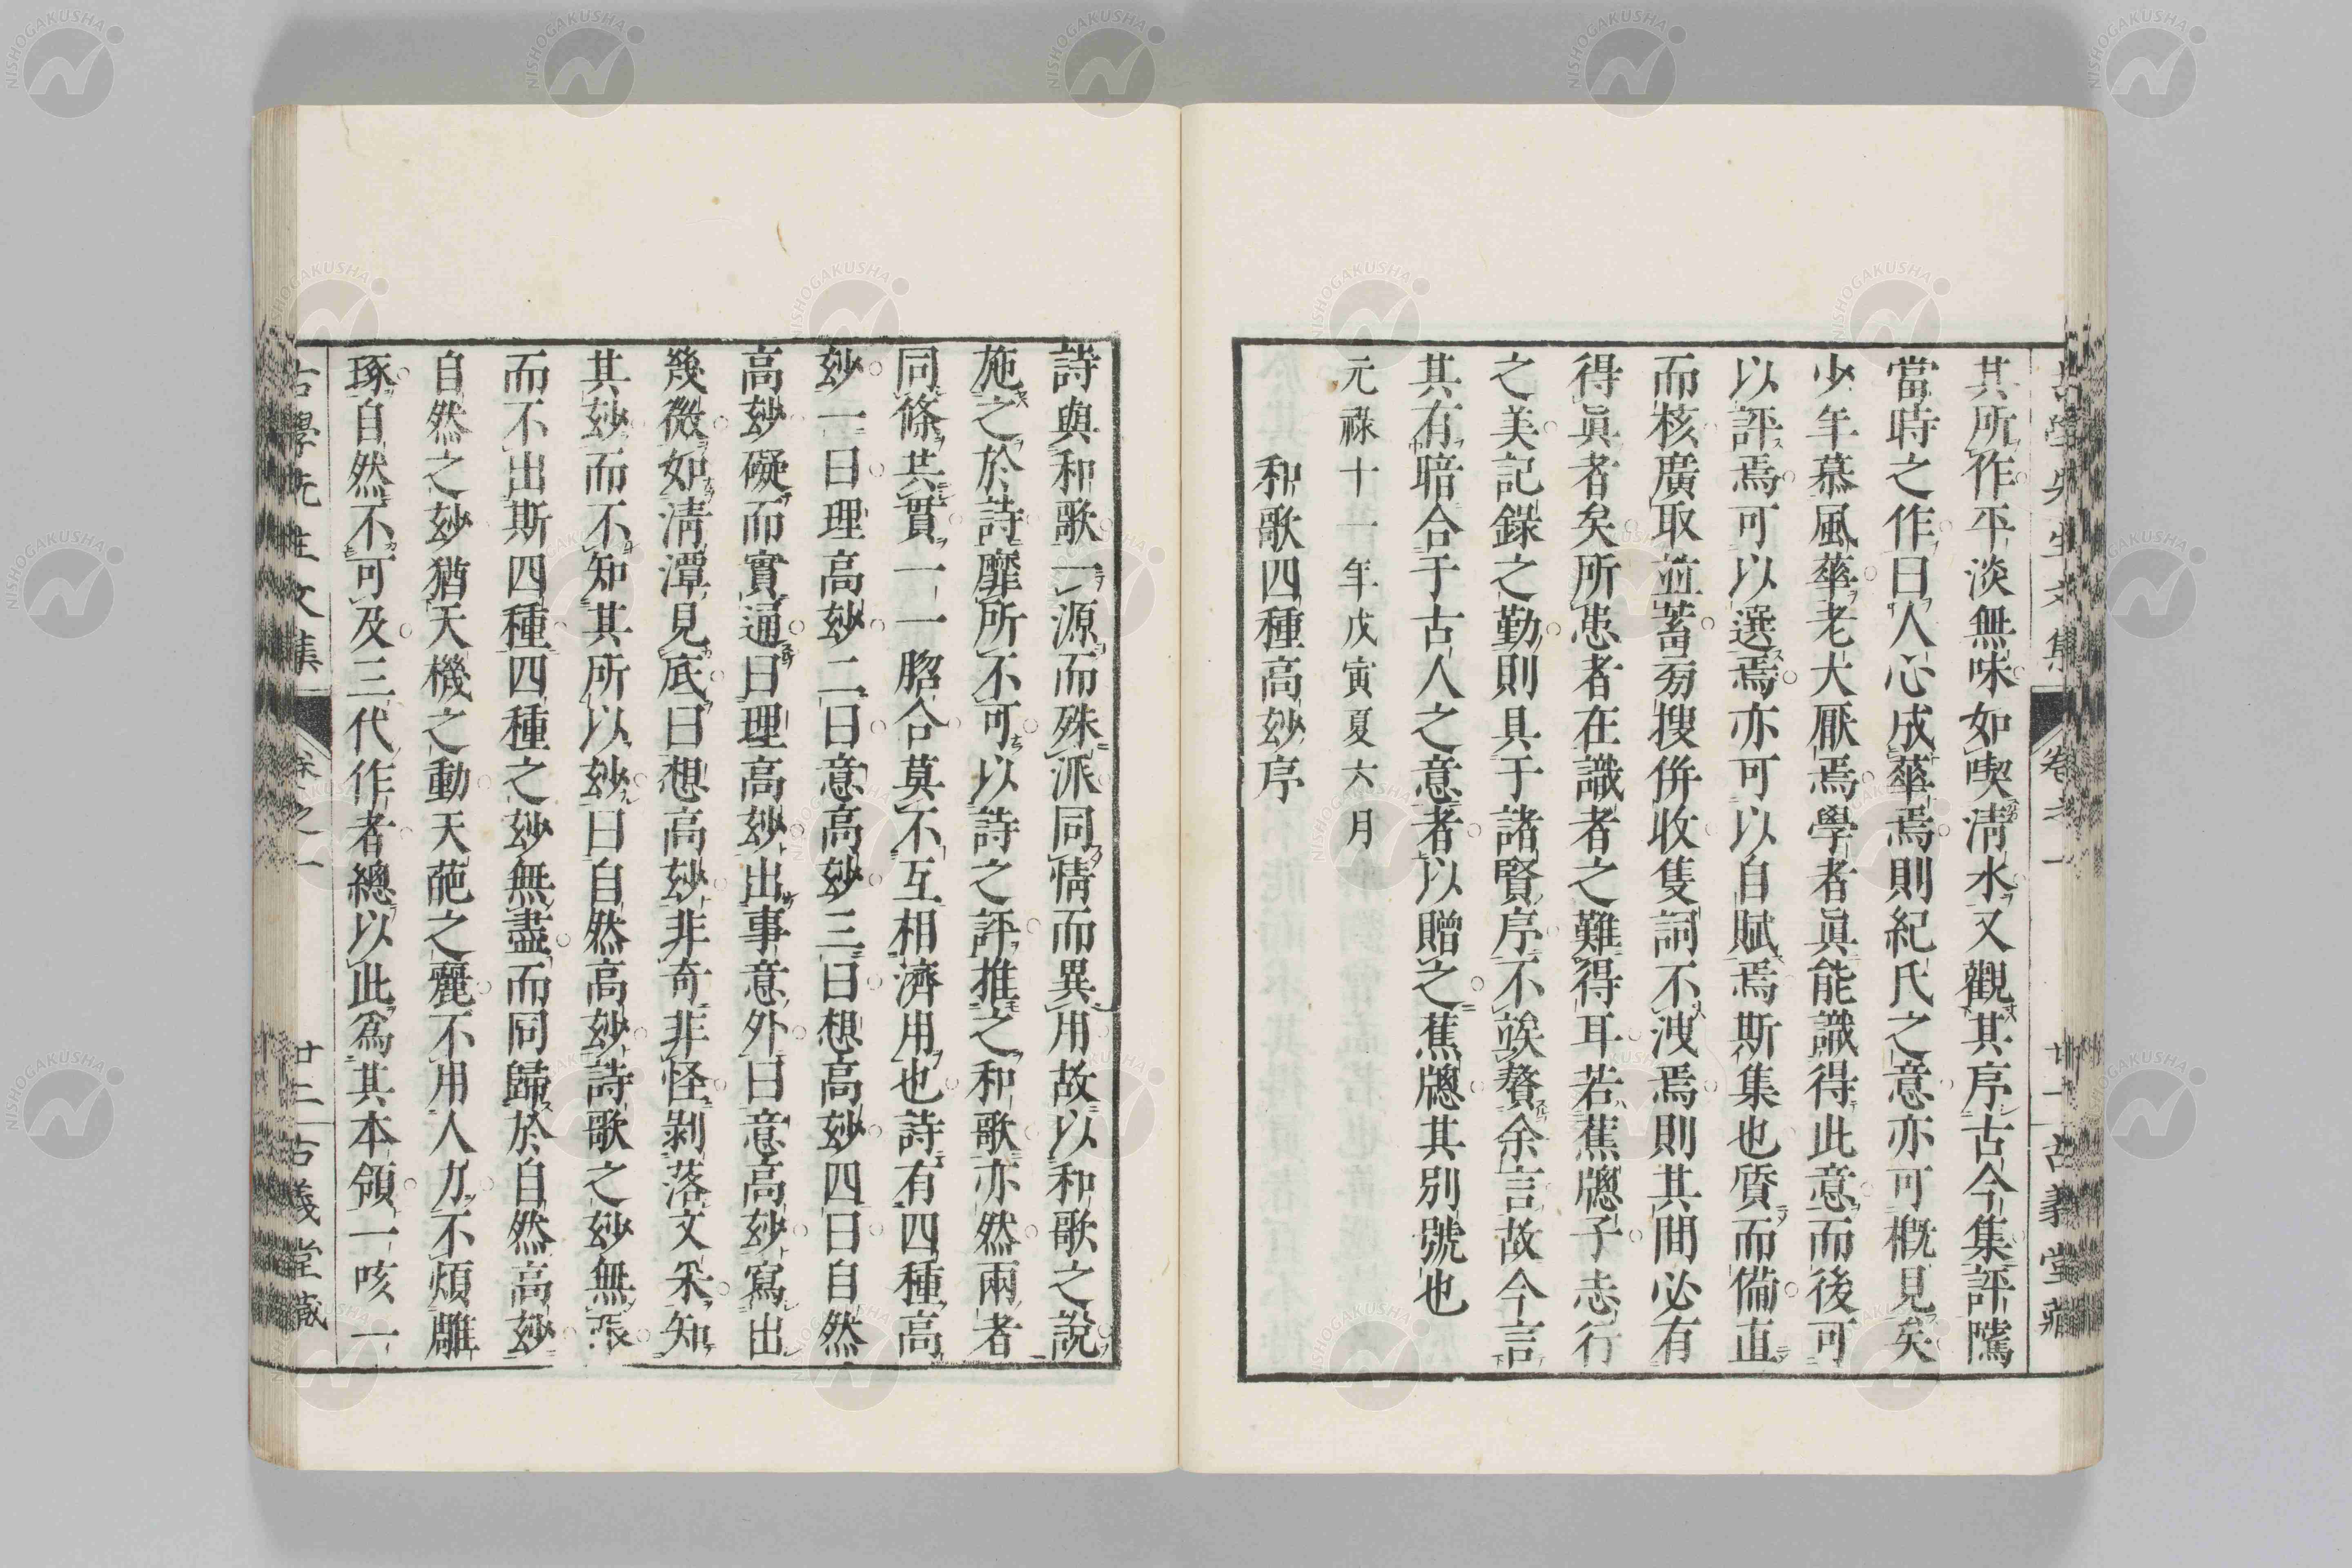 其所作平淡無味如喫清水又觀其序古今集評隲
當時之作曰人心成華焉則紀氏之意亦可概見矣
少年慕風華老大厭焉學者眞能識得此意而後可
以評焉可以選焉亦可以自賦焉斯集也質而備直
而核廣取並蓄旁搜併收隻詞不洩焉則其間必有
得眞者矣所患者在識者之難得耳若蕉牕子志行
之美記錄之勤則具于諸賢序不竢贅余言故今言
其有暗合于古人之意者以贈之蕉牕其別號也
元祿十一年戊寅夏六月
和歌四種高妙序
詩與和歌一源而殊派同情而異用故以和歌之說
施之於詩靡所不可以詩之評推之和歌亦然兩者
同條共貫一一脗合莫不互相濟用也詩有四種高
妙一曰理高妙二曰意高妙三曰想高妙四曰自然
高妙礙而實通曰理高妙出事意外曰意高妙寫出
幾微如清潭見底曰想高妙非奇非怪剝落文采知
其妙而不知其所以妙曰自然高妙詩歌之妙無張
而不出斯四種四種之妙無盡而同歸於自然高妙
自然之妙猶天機之動天葩之麗不用人力不煩雕
琢自然不可及三代作者總以此爲其本領一咳一
古學先生文集
卷之一
廿二
古義堂藏